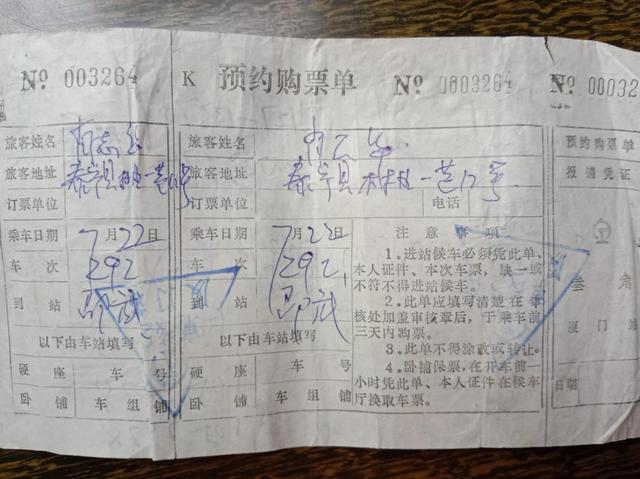 Nº 003264
旅客姓名
旅客地址 泰宁县
订票单位
乘车日期 7月22日
车次 292
到站
以下由车站填写
硬座 车 号
卧铺 车组 铺
K 预约购票单 Nº 0003264
旅客姓名
旅客地址 泰宁县 一巷12号
订票单位 电话
乘车日期 7月22日
车次 292
到站
以下由车站填写
硬座 车 号
卧铺 车组 铺
注意事项
1.进站候车必须凭此单、
本人证件、本次车票，缺一或
不符不得进站候车。
2.此单应填写清楚在
核处加盖审核章后，于乘车前
三天内购票。
3.此单不得涂改或转让。
4.卧铺保票，在开车前一
小时凭此单、本人证件在候车
厅换取车票。
Nº 00032
预约购票单
报销凭证
叁角
厦门站
日期